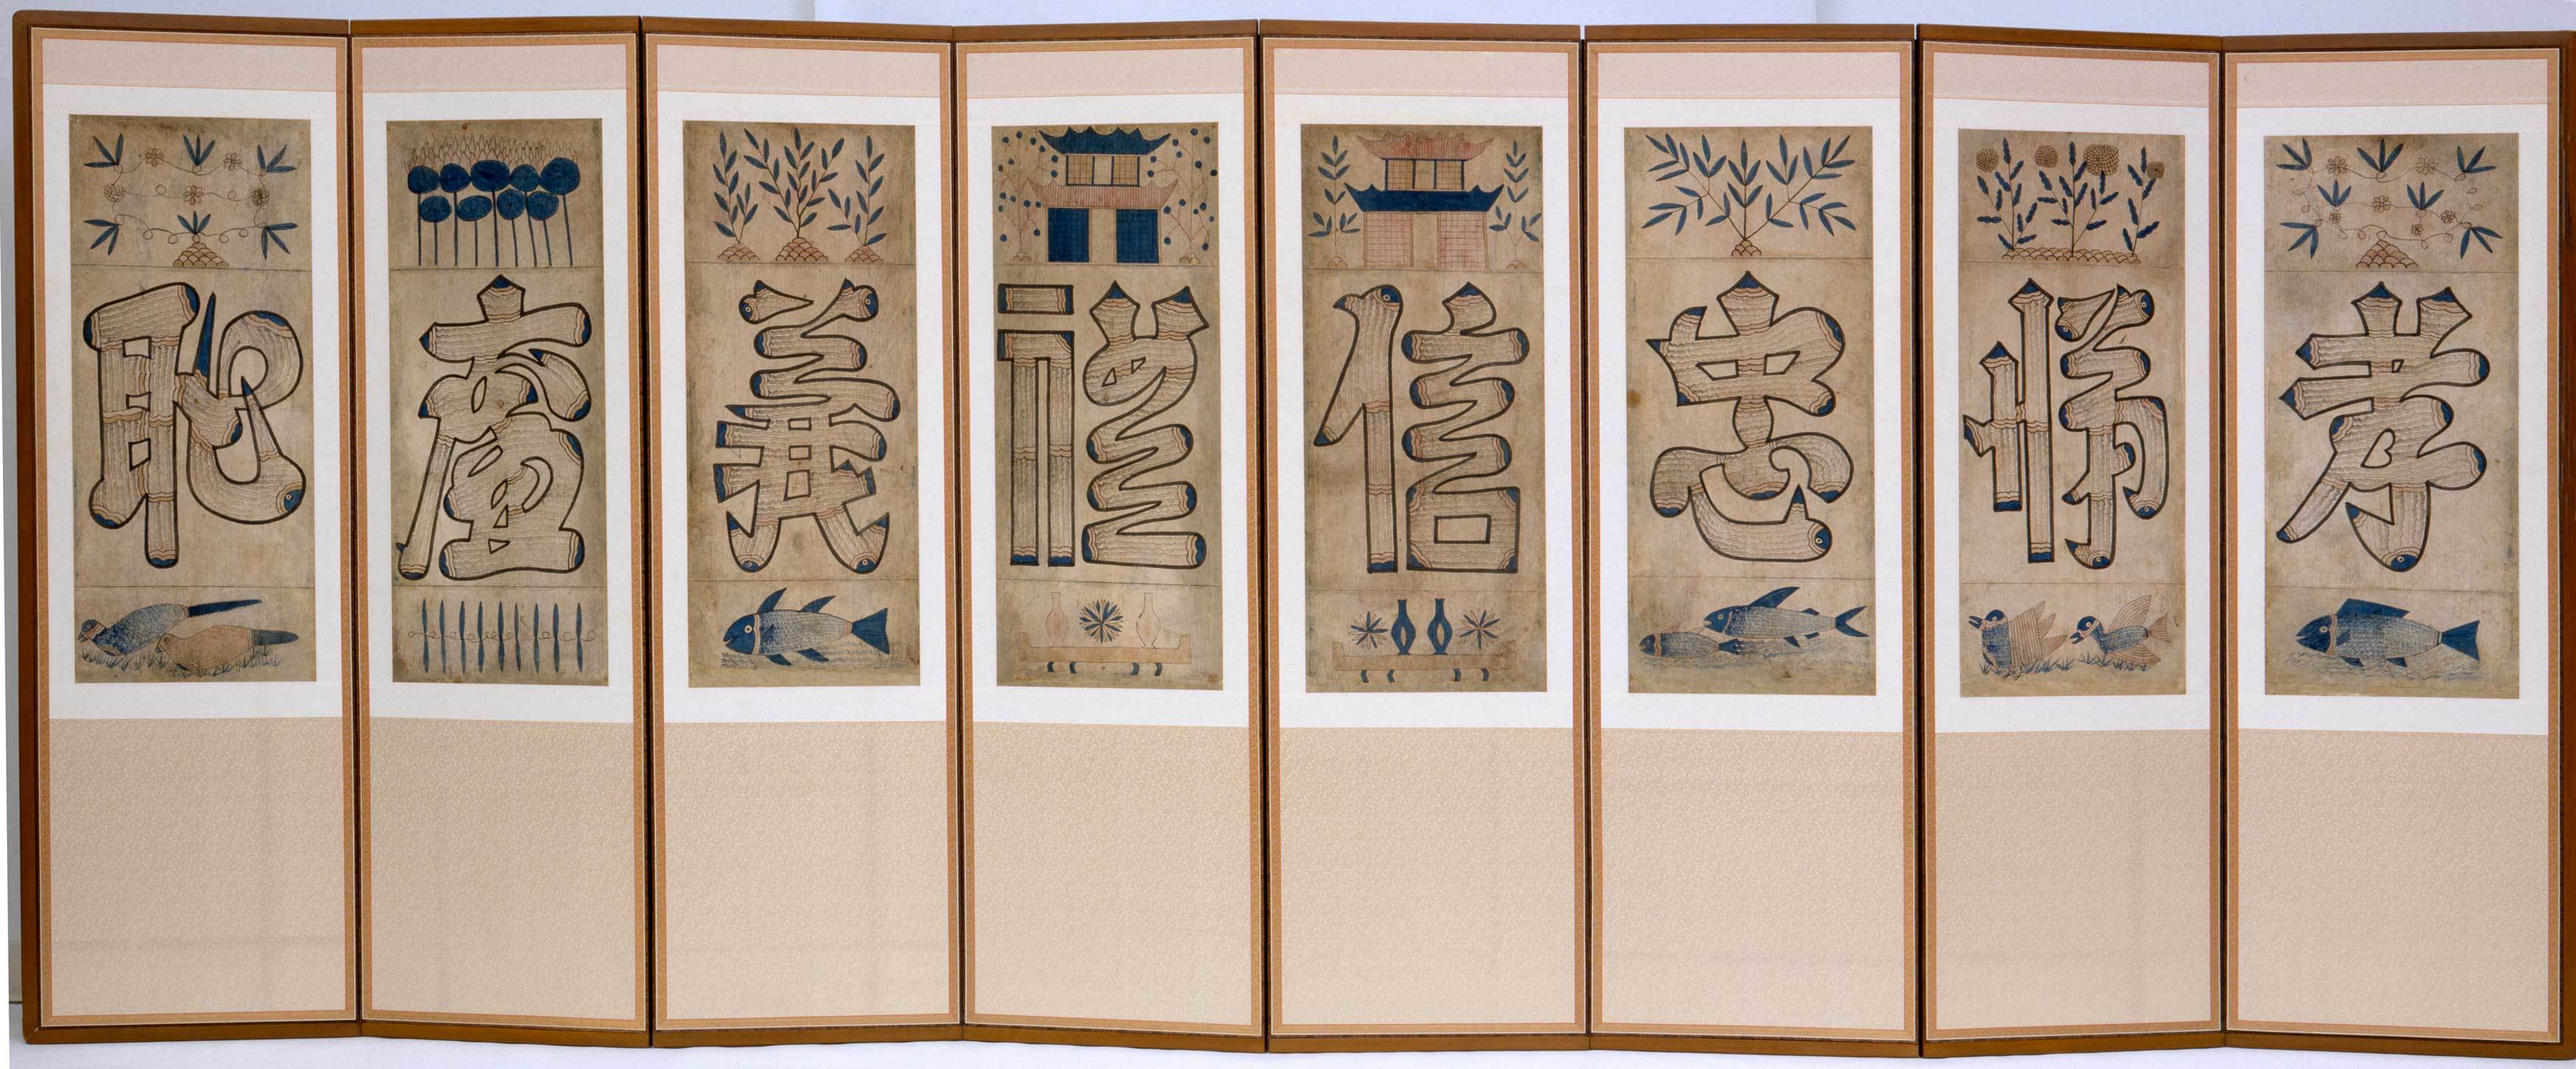 孝
悌
忠
信
禮
義
廉
恥